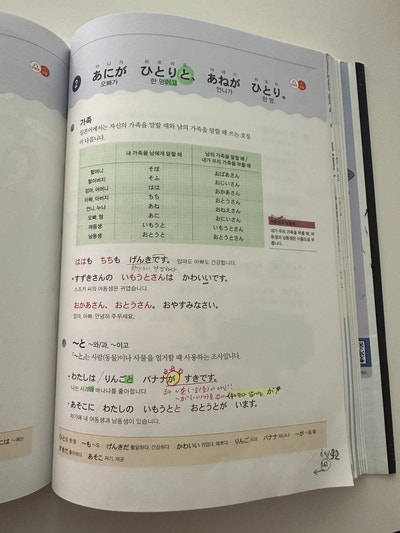 2
아니가 히토리토 아네가 히토리
あにが ひとりと、 あねが ひとり。
오빠가 한 명이고 언니가 한 명.
가족
일본어에서는 자신의 가족을 말할 때와 남의 가족을 말할 때 쓰는 호칭
이 다릅니다.
내 가족을 남에게 말할 때
남의 가족을 말할 때 /
내가 우리 가족을 부를 때
할머니 そぼ おばあさん
할아버지 そふ おじいさん
엄마, 어머니 はは おかあさん
아빠, 아버지 ちち おとうさん
언니, 누나 あね おねえさん
오빠, 형 あに おにいさん
여동생 いもうと いもうとさん
남동생 おとうと おとうとさん
내가 우리 가족을 부를 때, 여
동생과 남동생은 이름으로 부
릅니다.
ははも ちちも げんきです。 엄마도 아빠도 건강합니다.
すずきさんの いもうとさんは かわいいです。
스즈키 씨의 여동생은 귀엽습니다.
おかあさん、おとうさん。おやすみなさい。
엄마, 아빠. 안녕히 주무세요.
~と ~와/과, ~이고
「~と」는 사람(동물)이나 사물을 열거할 때 사용하는 조사입니다.
わたしは りんごと バナナが すきです。
나는 사과와 바나나를 좋아합니다.
あそこに わたしの いもうとと おとうとが います。
저기에 내 여동생과 남동생이 있습니다.
ひとり 한 명 ~も ~도 げんきだ 활달하다, 건강하다 かわいい 귀엽다, 예쁘다 りんご 사과 バナナ 바나나 ~が ~을/를
すきだ 좋아하다 あそこ 저기, 저곳
92
には ~에는